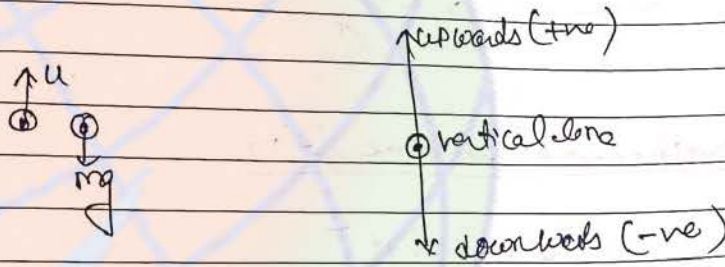 upwards (+ve)
u
vertical line
mg
downwards (-ve)